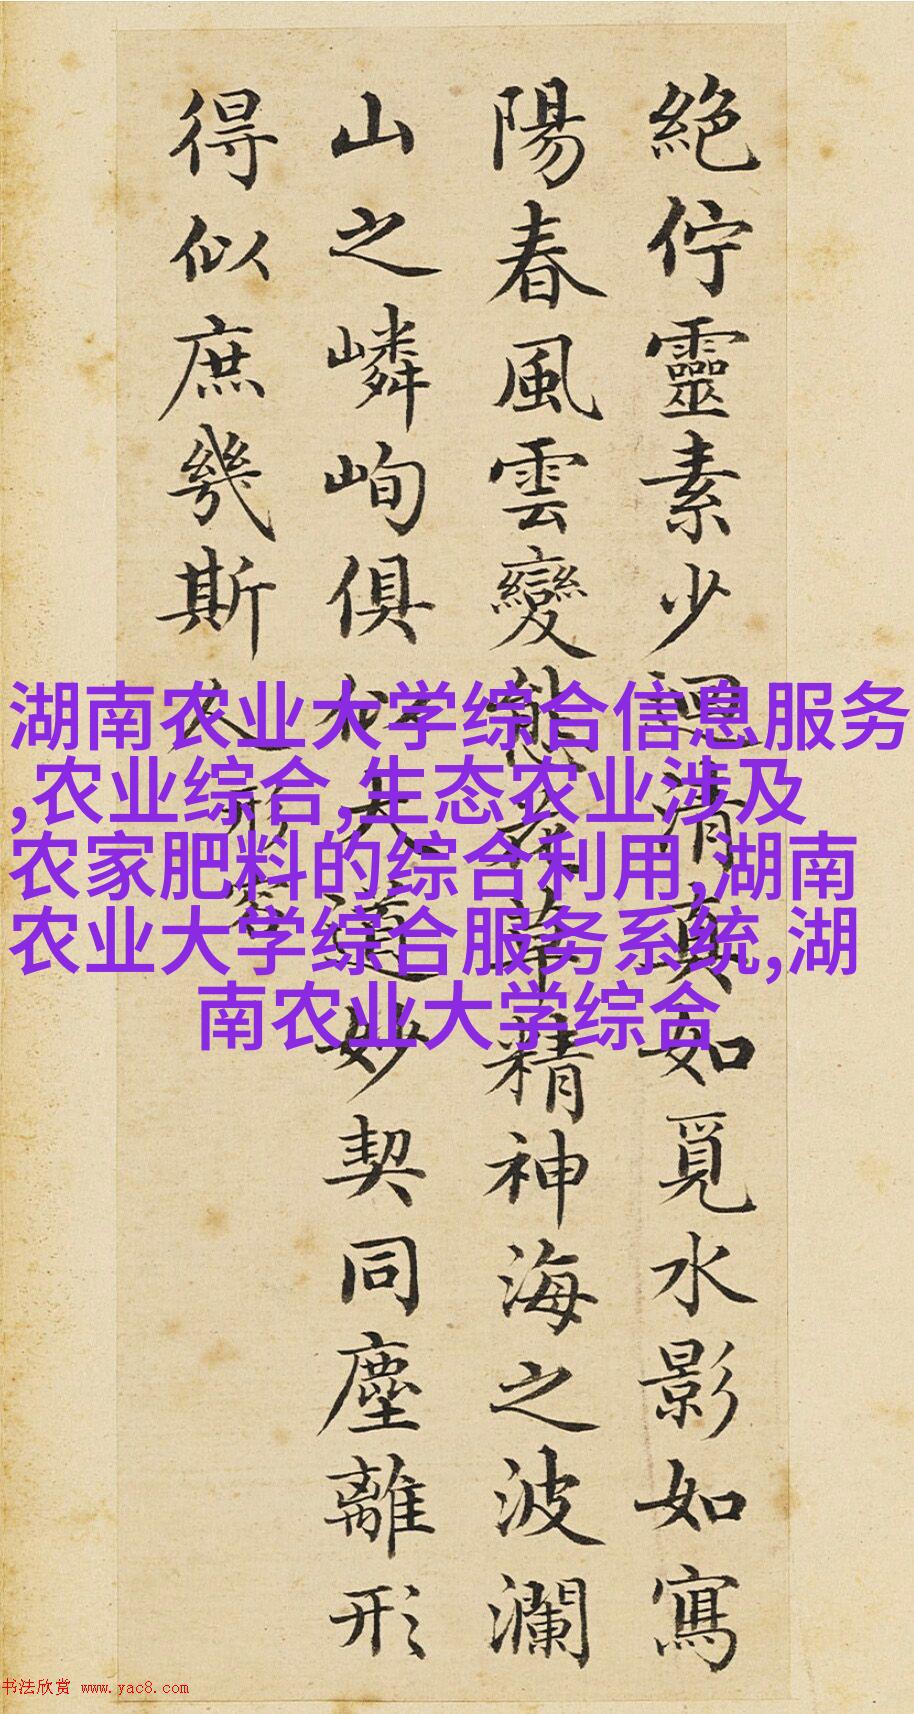 絕佇靈素少迴清真如覓水影如寫
陽春風雲變態花草精神海之波瀾
山之嶙峋俱似大道妙契同塵離形
得似庶幾斯人
形容
湖南农业大学综合信息服务
,农业综合,生态农业涉及
农家肥料的综合利用,湖南
农业大学综合服务系统,湖
南农业大学综合
书法欣赏 www.yac8.com